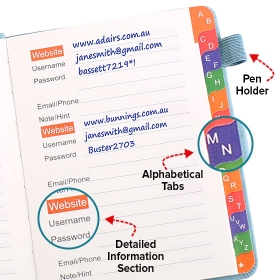 Website www.adairs.com.au
Username janesmith@gmail.com
Password bassett7219*!
Email/Phone
Note/Hint
Website www.bunnings.com.au
Username janesmith@gmail.com
Password Buster2703
Email/Phone
Website
Username
Password
Email/Phone
Note/Hint
A
B
C
D
E
F
G
H
I
J
M
N
Q
R
S
T
U,V,W
X,Y,Z
Pen
Holder
Alphabetical
Tabs
Detailed
Information
Section